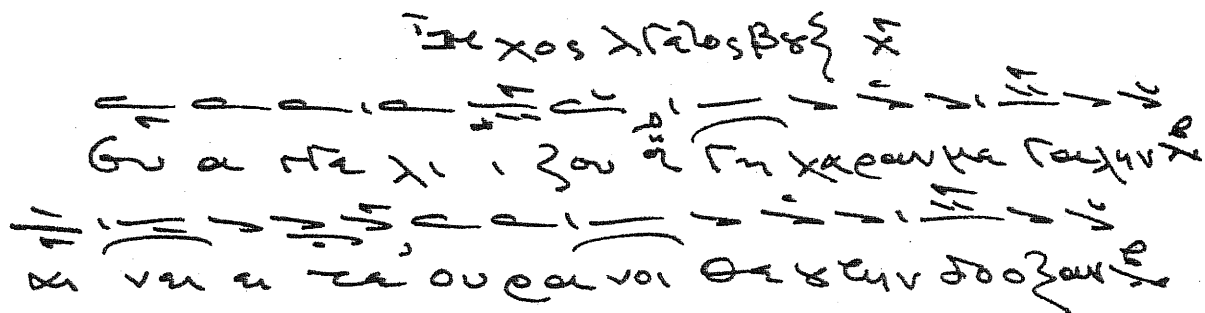 Ηχος λεγετος βου
Ευ α γγε λι ι ζου γη χα ραν με γα λην
αι νει ει τε ου ρα νοι Θε ου την δο ξαν